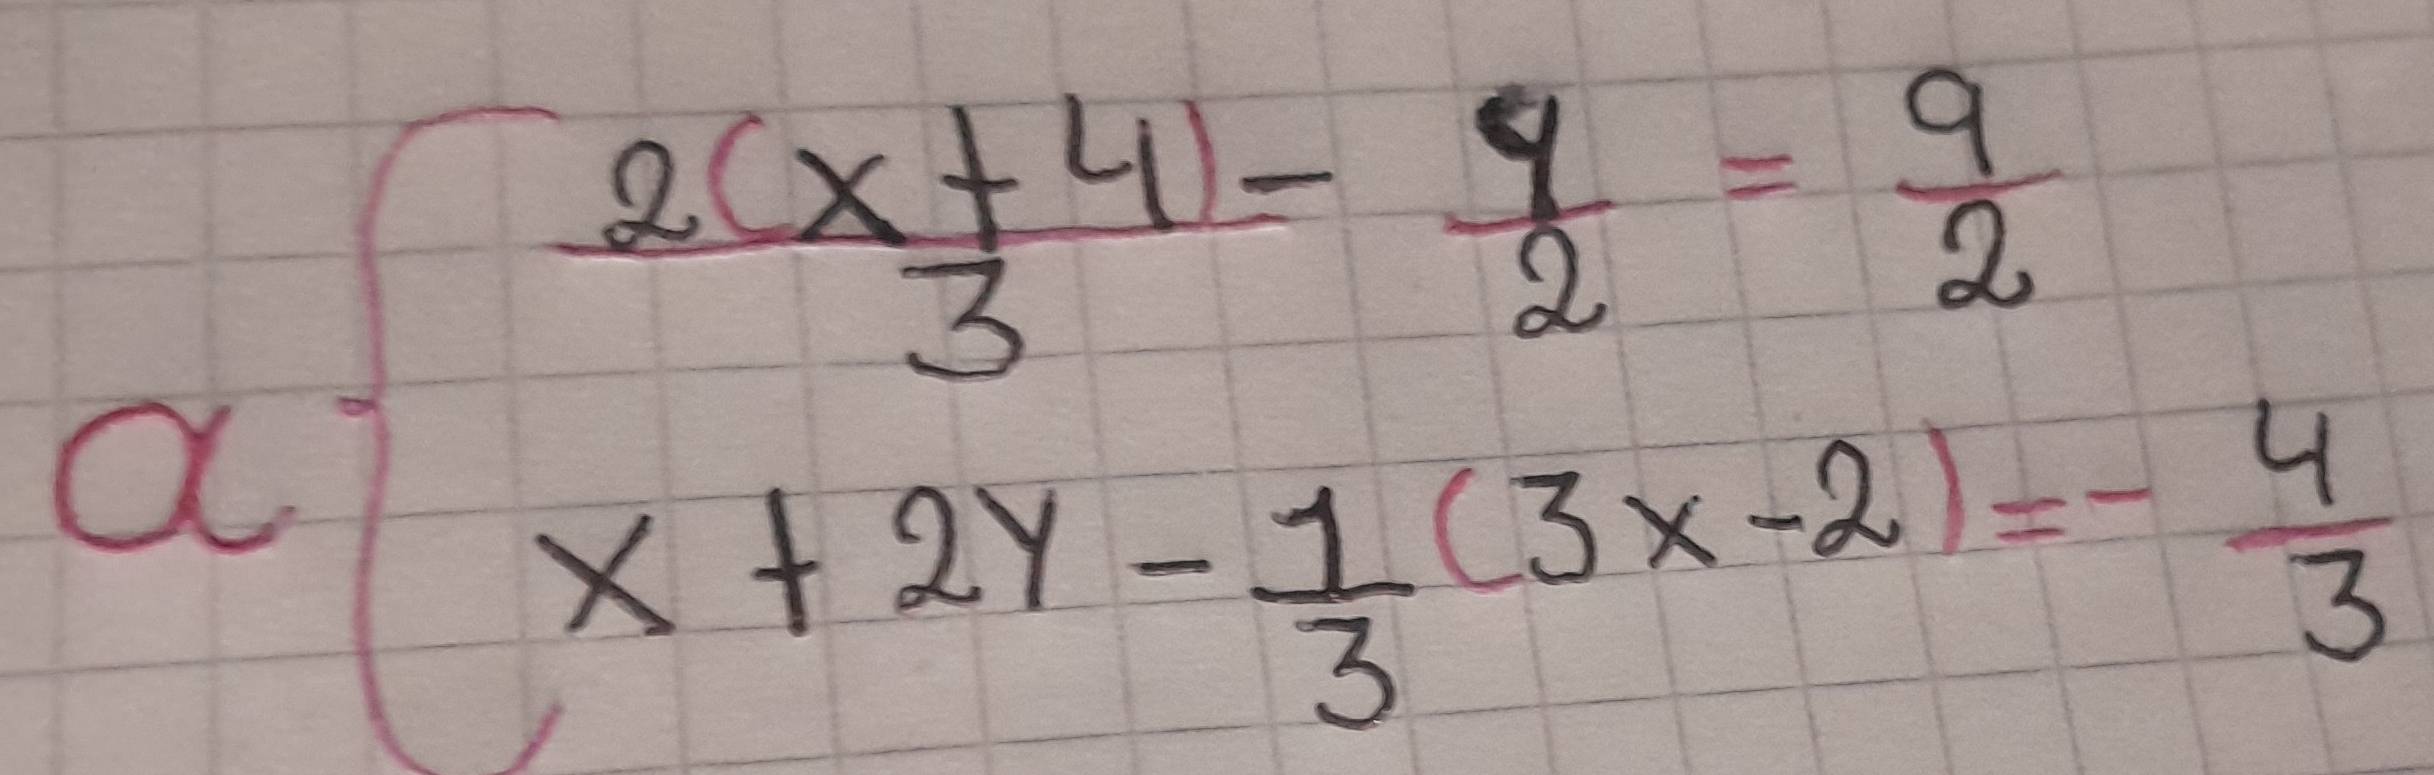 a { 2(x+4)/3 - y/2 = 9/2
x + 2y - 1/3 (3x-2) = - 4/3